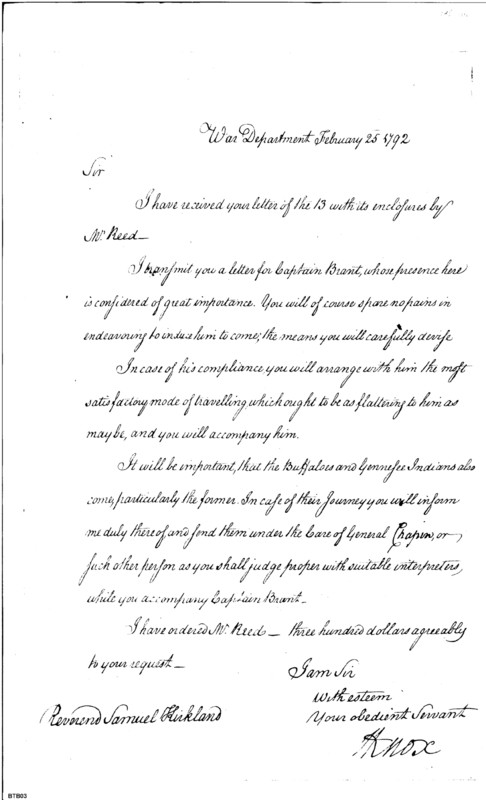 War Department February 25 1792
Sir
I have received your letter of the 13 with its enclosures by
Mr. Reed—
I transmit you a letter for Captain Brant, whose presence here
is considered of great importance. You will of course spare no pains in
endeavouring to induce him to come; the means you will carefully devise
In case of his compliance you will arrange with him the most
satisfactory mode of travelling which ought to be as flattering to him as
may be, and you will accompany him.
It will be important, that the Buffaloes and Gennesee Indians also
come, particularly the former. In case of their Journey you will inform
me duly thereof and send them under the Care of General Chapin, or
such other person as you shall judge proper with suitable interpreters,
while you accompany Captain Brant—
I have ordered Mr. Reed— three hundred dollars agreeably
to your request—
I am Sir
With esteem
Your obedient Servant
HKnox
Reverend Samuel Kirkland
BTB03